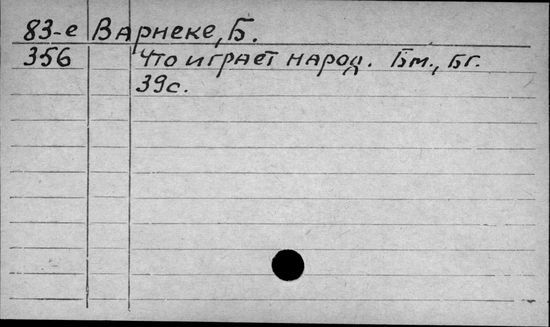 83-е Варнеке, Б.
356 Что играет народ. Бм., Бг.
39с.